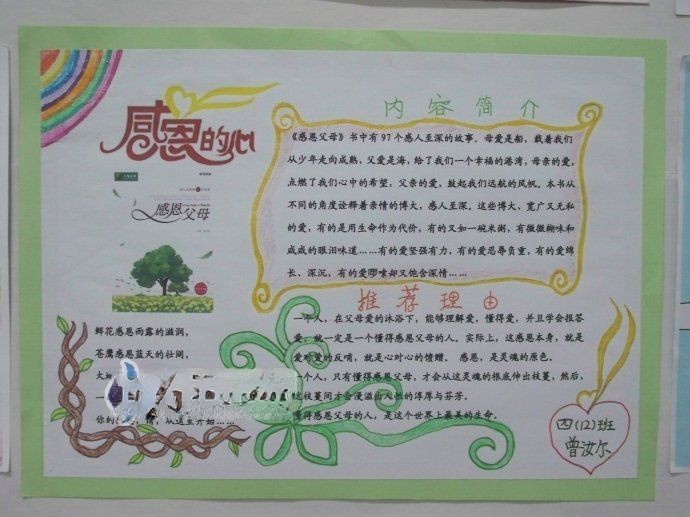 感恩的心
感恩父母
内容简介
《感恩父母》书中有97个感人至深的故事。母爱是船，载着我们
从少年走向成熟，父爱是海，给了我们一个幸福的港湾，母亲的爱，
点燃了我们心中的希望，父亲的爱，鼓起我们远航的风帆。本书从
不同的角度诠释着亲情的博大，感人至深。这些博大，宽广又无私
的爱，有的是用生命作为代价，有的又如一碗米粥，有微微糊味和
咸咸的眼泪味道……有的爱坚强有力，有的爱忍辱负重，有的爱绵
长、深沉，有的爱啰嗦却又饱含深情……
推荐理由
一个人，在父母爱的沐浴下，能够理解爱，懂得爱，并且学会报答
爱，就一定是一个懂得感恩父母的人。实际上，这感恩本身，就是
爱对爱的反哺，就是心对心的馈赠。 感恩，是灵魂的原色。
一个人，只有懂得感恩父母，才会从这灵魂的根底伸出枝蔓，然后，
这枝蔓间才会漫溢出人性的淳厚与芬芳。
懂得感恩父母的人，是这个世界上最美的生命。
鲜花感恩雨露的滋润，
苍鹰感恩蓝天的壮阔，
大
一
你的 情，从这里开始……
四(12)班
曾汝尔